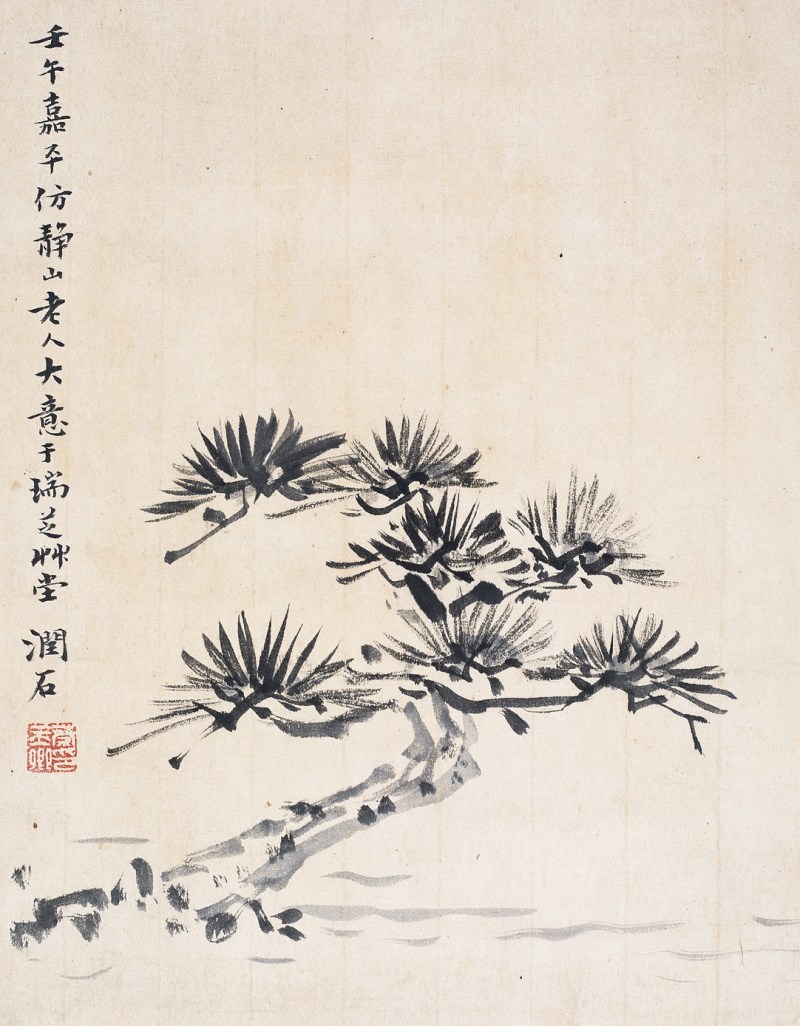 壬午嘉平仿静山老人大意于瑞芝艸堂 潤石